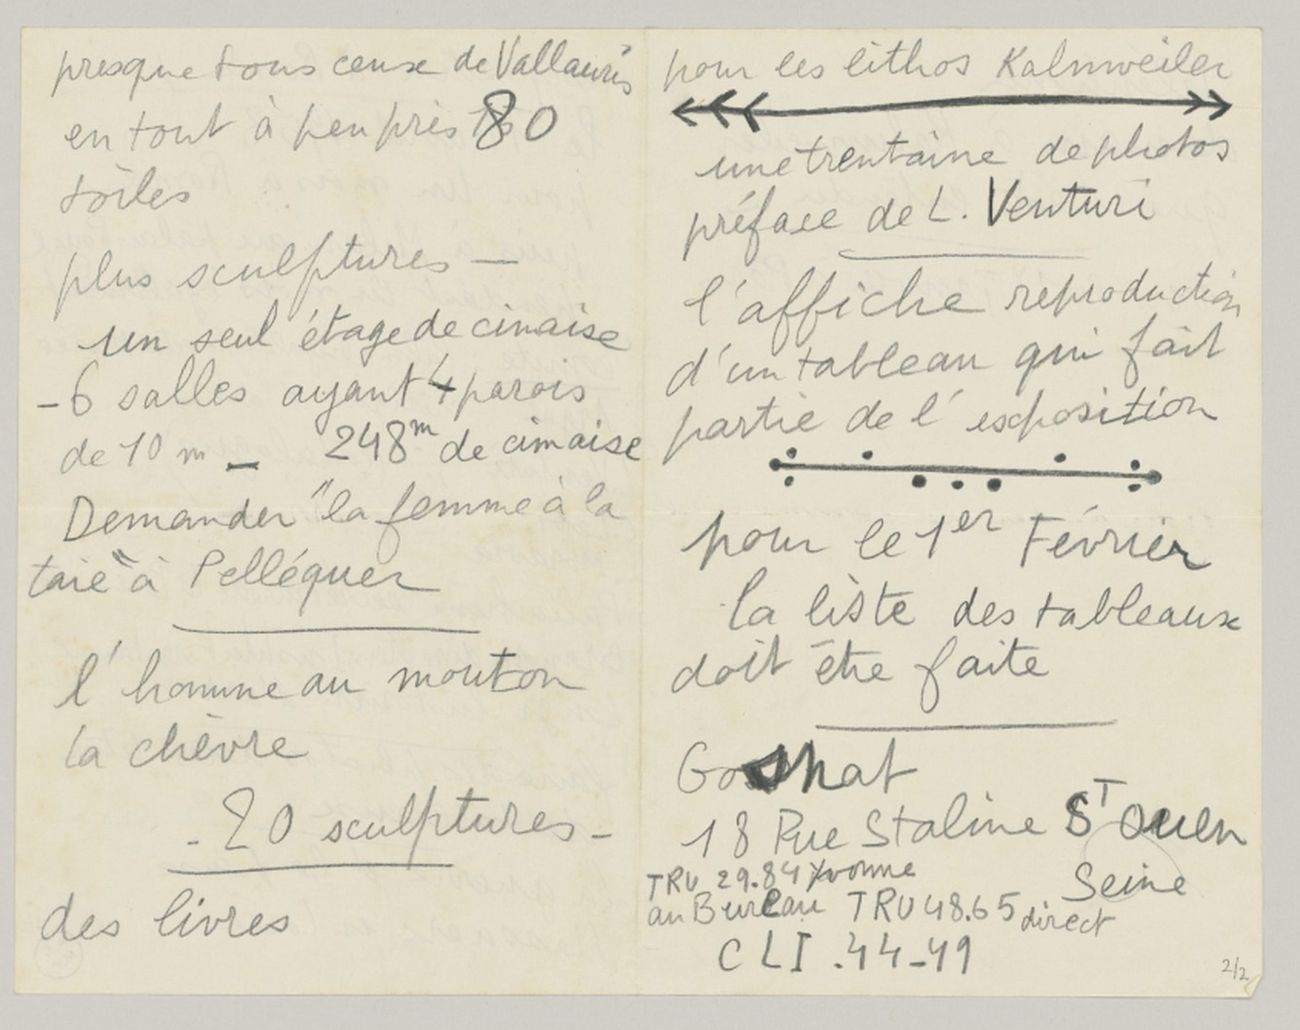 presque tous ceux de Vallauris
en tout à peu près 80
toiles
plus sculptures —
un seul étage de cimaise
- 6 salles ayant 4 parois
de 10 m — 248m de cimaise
Demander "la femme à la
taie" à Pelléquer
l'homme au mouton
la chèvre
- 20 sculptures -
des livres
pour les lithos Kalnweiler
une trentaine de photos
préface de L. Venturi
l'affiche reproduction
d'un tableau qui fait
partie de l'exposition
pour le 1er Février
la liste des tableaux
doit être faite
18 Rue Staline ST Ouen
Seine
TRU 29.84 Yvonne
au Bureau TRU 48.65 direct
CLI .44-49
2/2